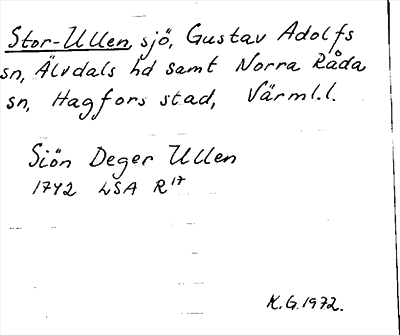 Stor-Ullen, sjö, Gustav Adolfs
sn, Älvdals hd samt Norra Råda
sn, Hagfors stad, Värml.l.
Siön Deger Ullen
1742 LSA R17
K.G.1972.